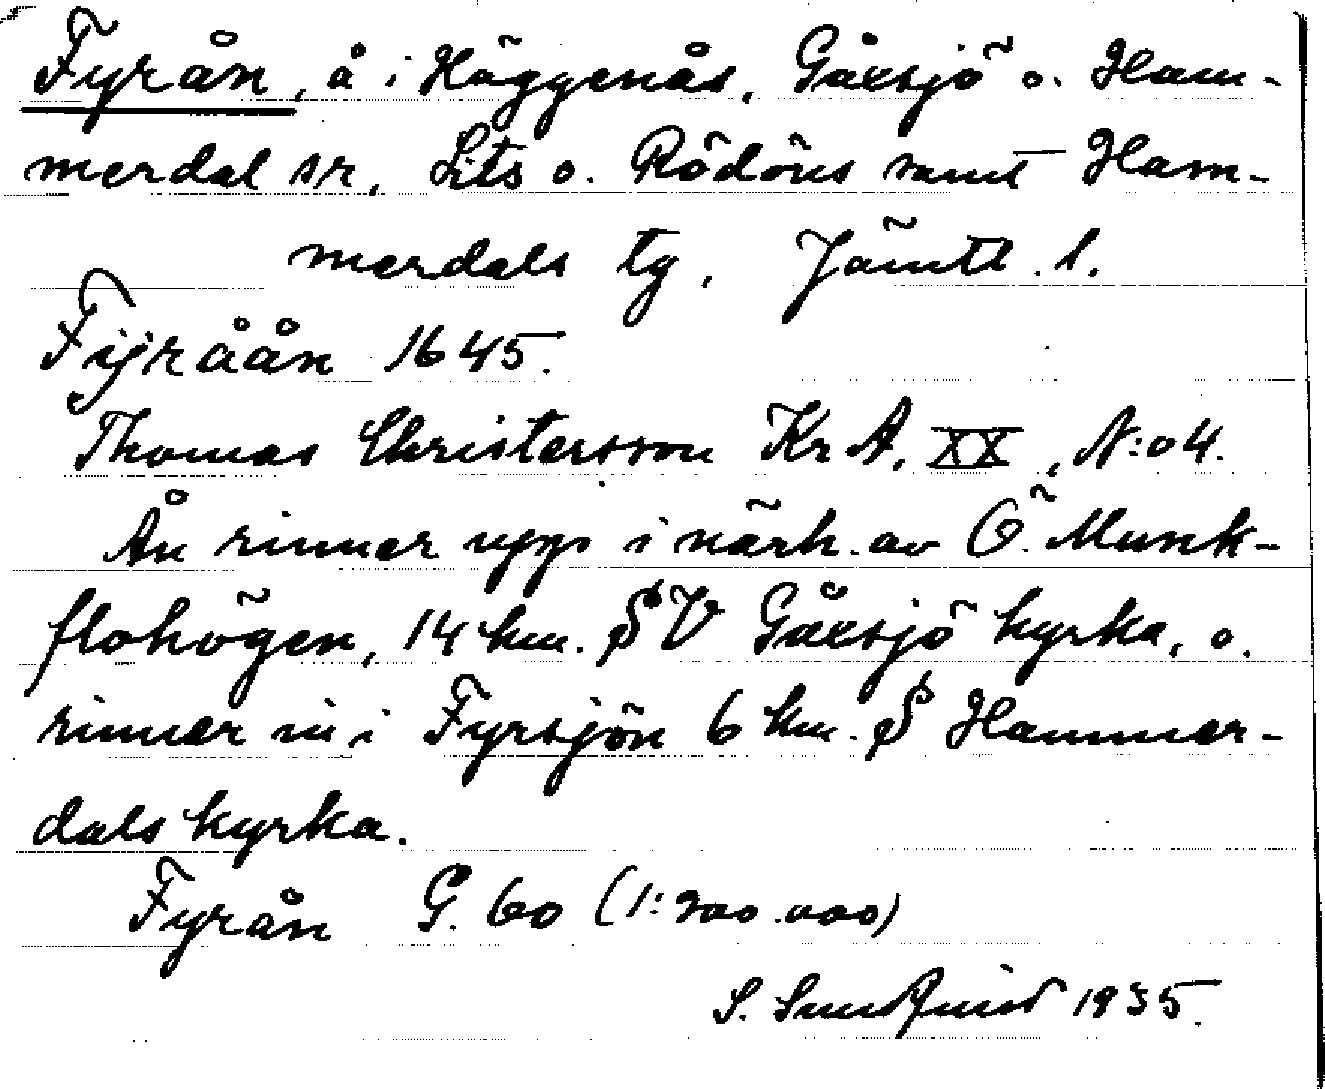 Fyrån, å i Häggenås, Gåxsjö o. Ham-
merdal sr, Lits o. Rödöns samt Ham-
merdals tg, Jämtl. l.
Fijråån 1645.
Thomas Christersson Kr A, XX, N:o 4.
Ån rinner upp i närh. av Ö. Munk-
flohögen, 14 km. S V Gåxsjö kyrka, o.
rinner in i Fyrsjön 6 km. S Hammer-
dals kyrka.
Fyrån G. 60 (1:200.000)
S. Sundquist 1935.